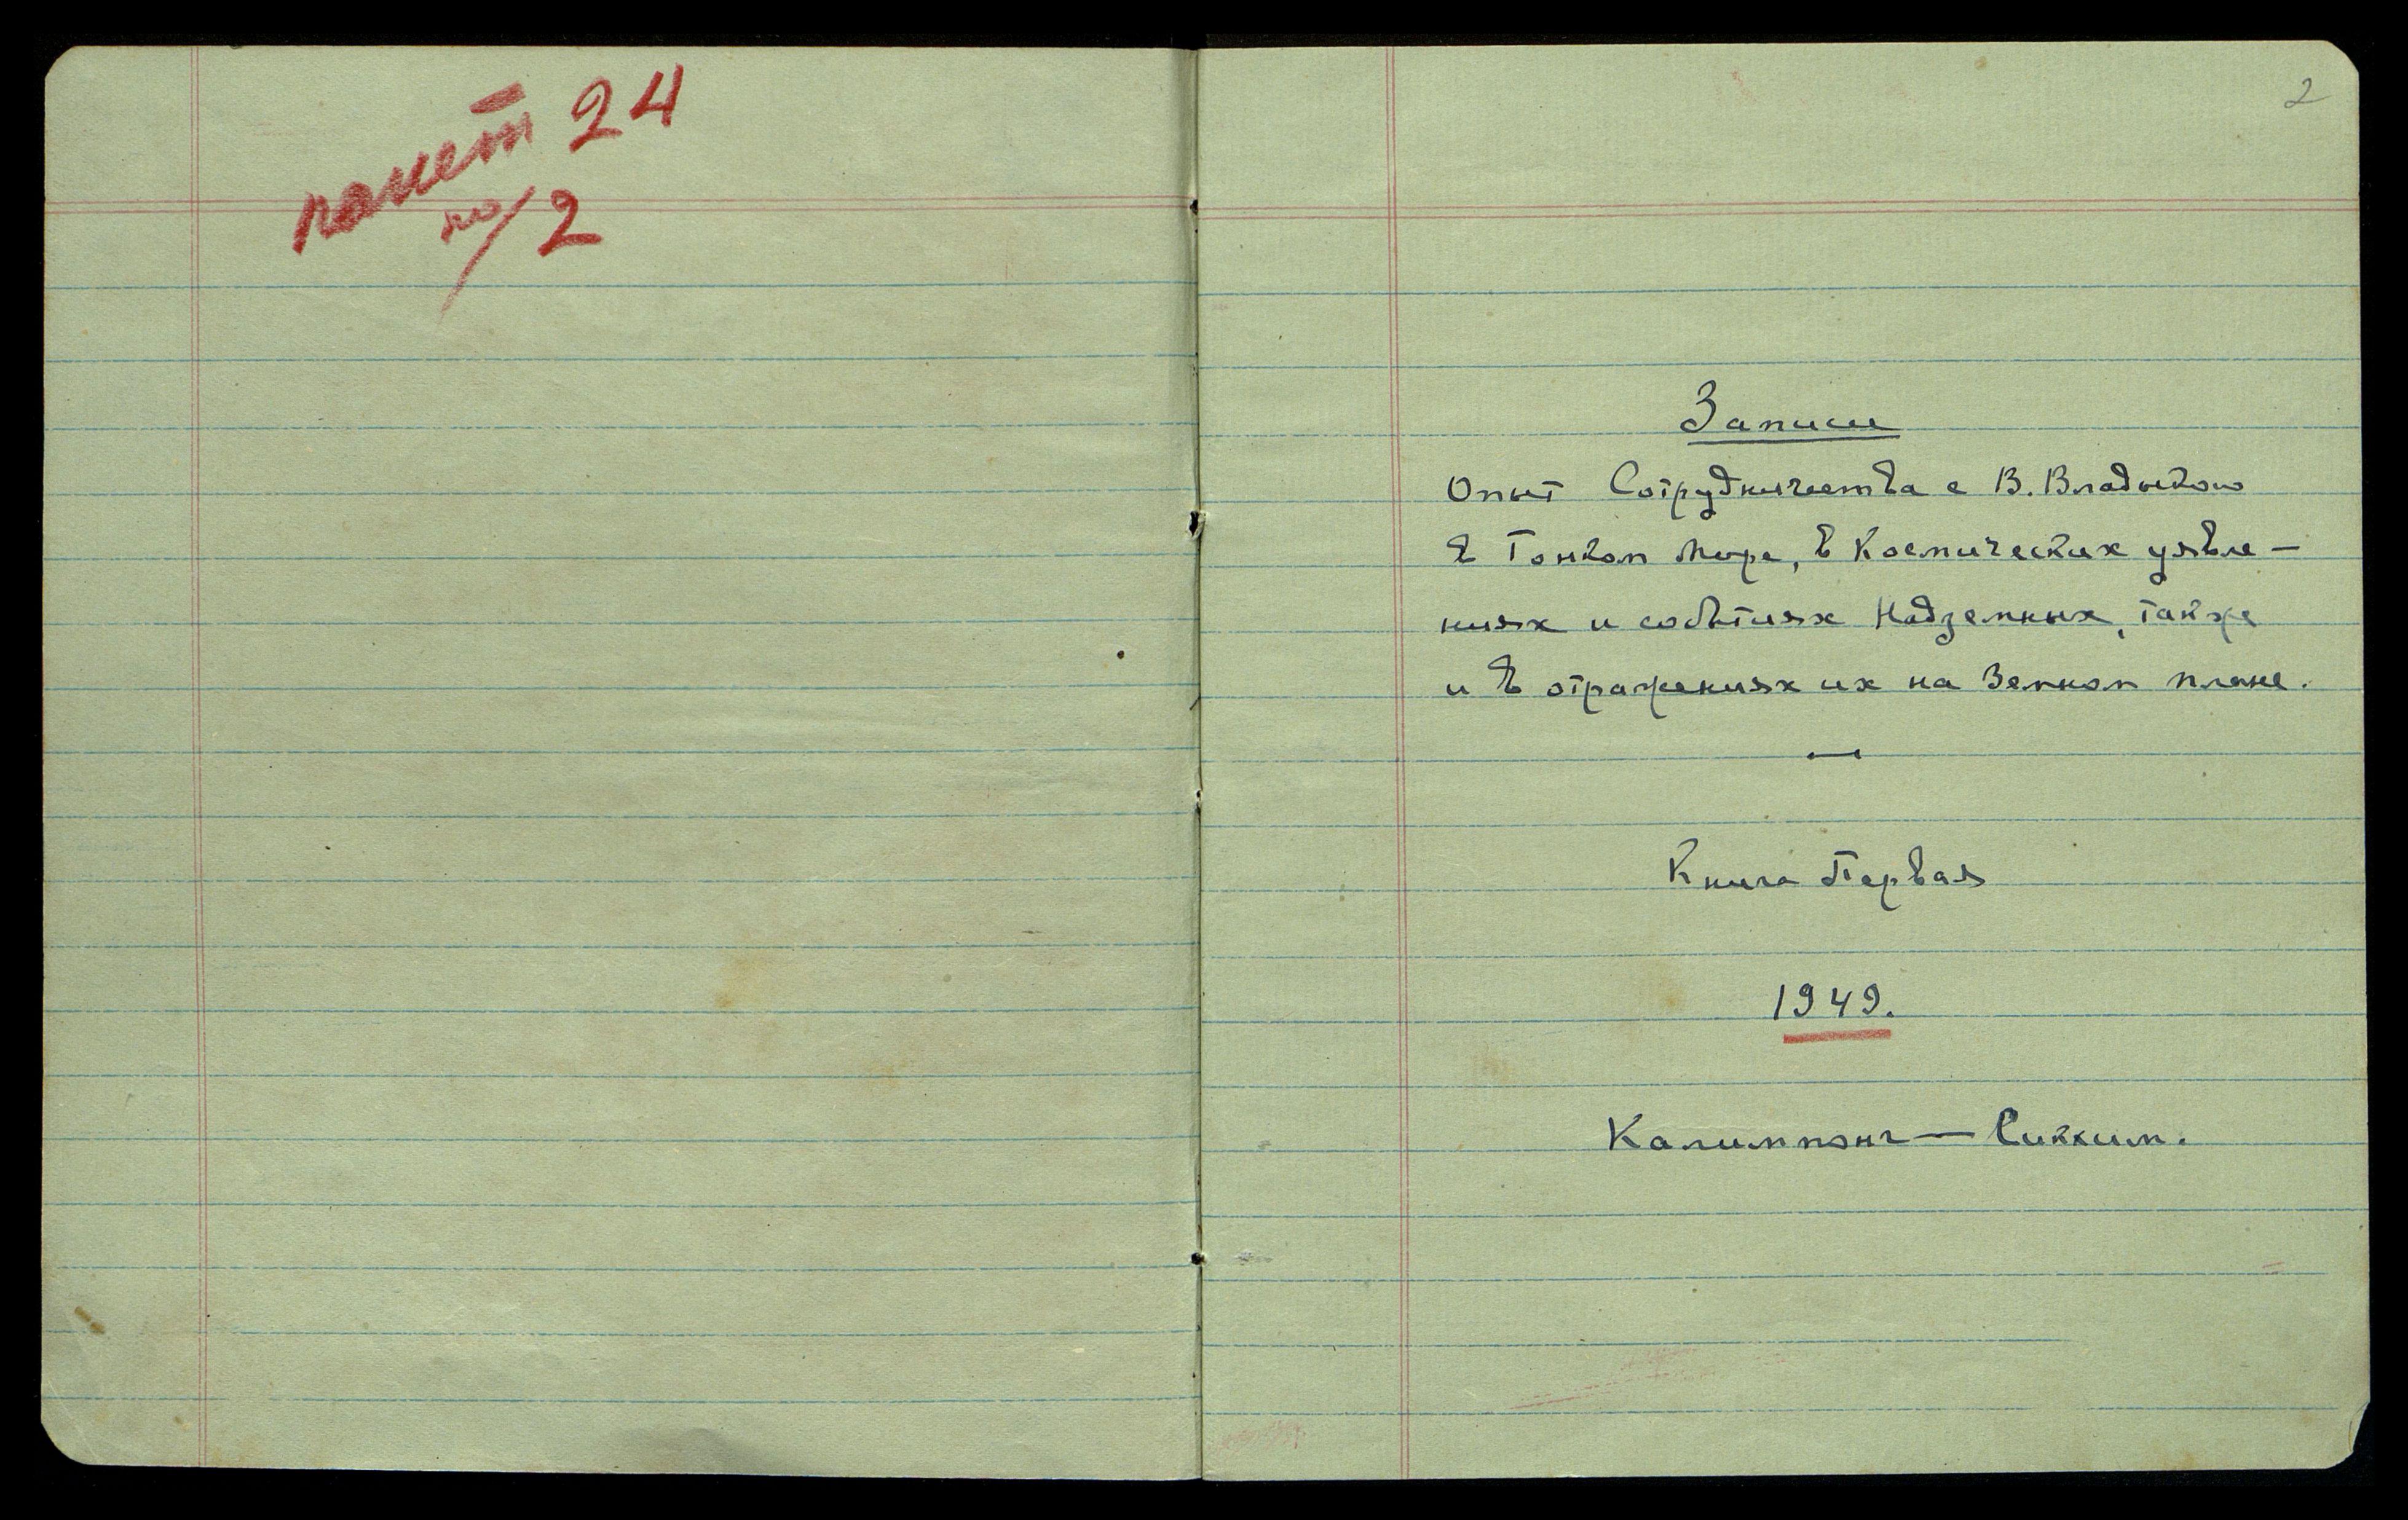 пакет 24
no/2
2
Записи
Опыт Сотрудничества с В. Владыкою
в Тонком Мире, в Космических уявле-
ниях и событиях Надземных, также
и в отражениях их на Земном плане.
—
Книга Первая
1949.
Калимпонг — Сикким.